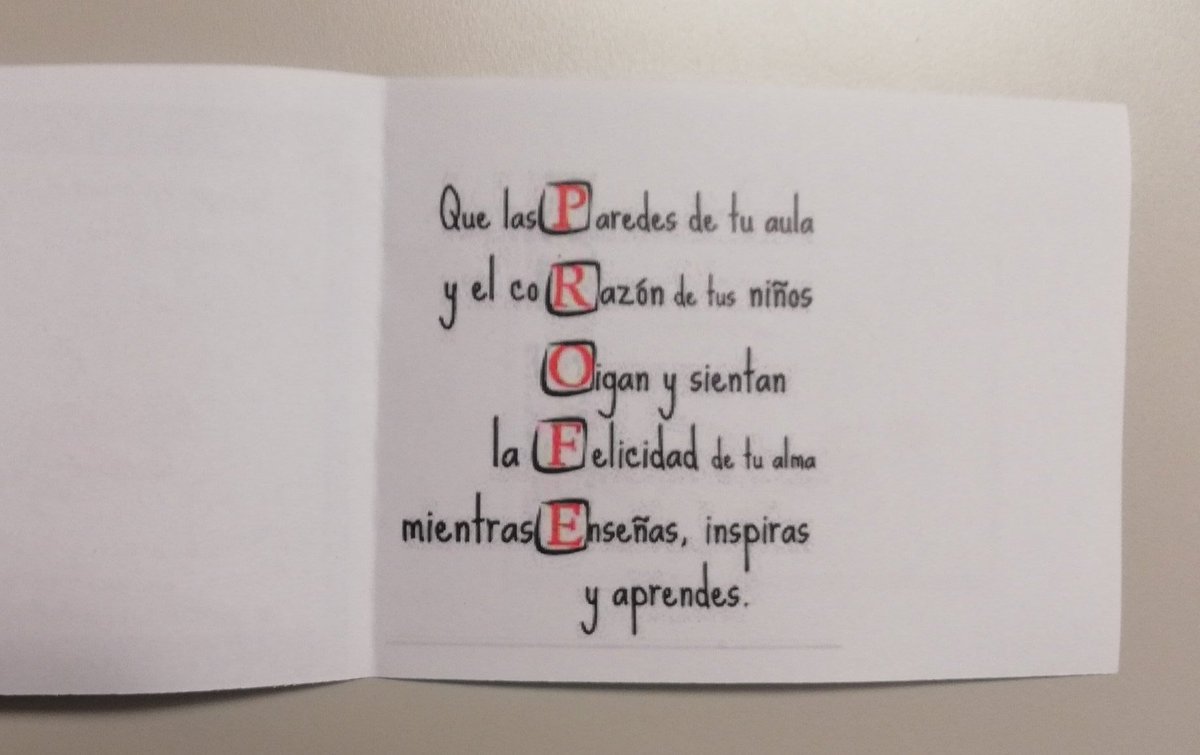 Que las Paredes de tu aula
y el coRazón de tus niños
Oigan y sientan
la Felicidad de tu alma
mientras Enseñas, inspiras
y aprendes.